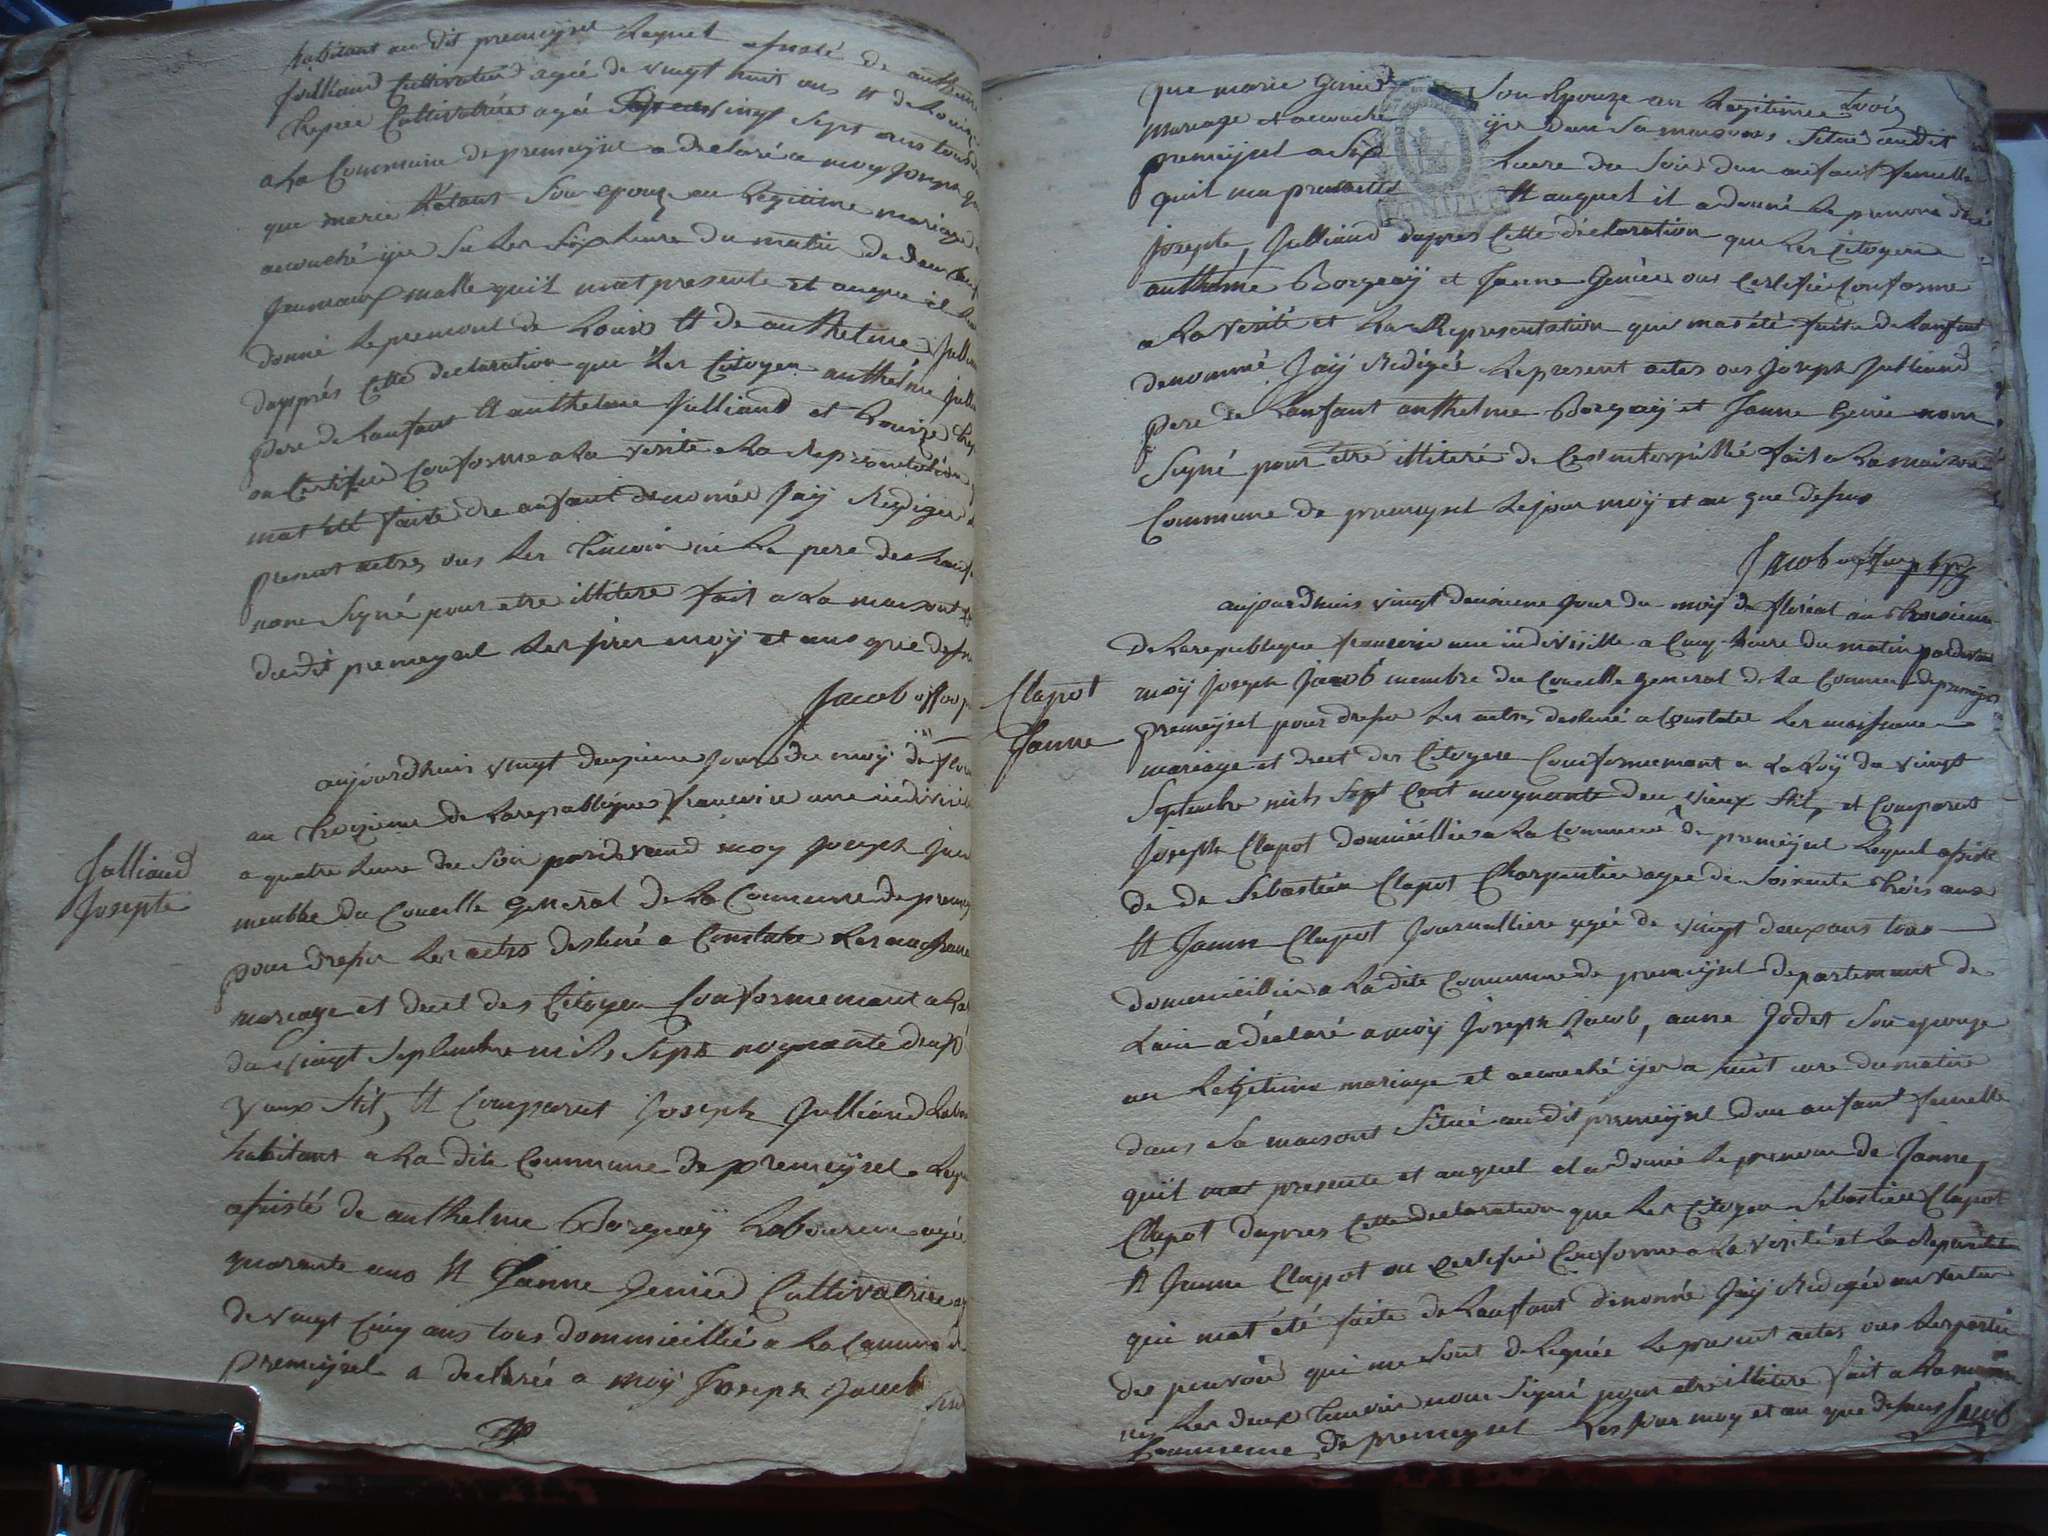 habitant au dit premeysel lequel assisté de anthelme
Julliand Cultivateur agée de vingt huit ans tt de Louise
Cultivatrice agée vingt sept ans tous
a La Commune de premeysel a declaré a moy Joseph
que marie son epouze en Legitime mariage
accouché yer Su Les Six heure du matin de deux
Jeumaux malle quil mat presenté et auque il
donné Le prenont de Louis tt de anthelme Jull
dapprés Cette declaration que Les Citoyen anthelme Jull
pere de Lanfant tt anthelme Julliand et Louize
on Certifié Conforme a La verité a La Representation
mat été faite de anfant denomée Jaÿ Redigée
present actes ous Les temoin ni Le pere de Lanf
nom Signé pour etre illitere fait a La maisont
dudit premeysel Les jour moÿ et ans que dessu
Jacob off
Julliand
Josepte
aujourdhuis vingt deuxieme jours du moÿ de flore
an troizieme de Larepublique francoise une indivisi
a quatre heure du Soir pardevand moy Joseph Jac
membre du Conseille general de La Commune de preme
pour dresser Les actes destiné a Constater Les naissance
mariage et deces des Citoyen Conformemant a La
du vingt Septembre mils Sept noynante deux
vieux Stil, tt Comparut Joseph Julliand Lab
habitant a La dite Commune de premeysel Leque
assisté de anthelme Borgeaÿ Laboureur agée
quarante ans tt Janne Genied Cultivatrice ag
de vingt Cinq ans tous dommicillié a La Commune d
premeysel a declarée a moÿ Joseph Jacob
que marie Genied Son Epouze en Legitime
mariage et accouché yer dans Sa maisons Situé audit
premeysel a Six heure du Soir dun anfant femelle
quil ma presentée tt auquel il a donné Le prenom de
Joseple, Julliand dapres Cette déclaration que Les Citoyen
anthelme Borgeaÿ et Janne Genied ons Certifié Conforme
a La verité et La Representation qui mat été faite de Lanfant
denommé Jaÿ Redigée Le present actes ous Joseph Julliand
pere de Lanfant anthelme Borgeaÿ et Janne Genie nom
Signé pour etre illiteré de Ces interpéllé fait a La maison
Commune de premeysel Le jour moÿ et an que dessus
Jacob
Clapot
Janne
aujourdhuis vingt deuxieme jour du moÿ de floréal an troisieme
de Larepublique francoise une indivisille a Cinq heure du matin pardevand
moÿ Joseph Jacob membre du Conseille general de La Commune de premeysel
premeysel pour dresser Les actes destiné a Constater Les naissance
mariage et decet des Citoyen Conformemant a La Loÿ du vingt
Septembre mils Sept Cent noynante deu vieux Stil, et Comparut
Joseph Clapot domicillié a La Commune de premeysel Lequel assisté
de de Sebastien Clapot Charpentier agée de Soixente trois ans
tt Janne Clapot Journalliere agée de vingt deux ans tous
dommicillié a La dite Commune de premeysel departemant de
Lain a déclaré a moÿ Joseph Jacob, anne Jodet Son epouze
en Legitime mariage et accouché yer a huit eure du matin
dans Sa maisont Situé audit premeysel dun anfant femelle
quil mat presenté et auquel il a donné Le prenom de Janne,
Clapot dapres Cette declaration que Les Citoyen Sebastien Clapot
tt Janne Clapot on Certifié Conforme a La verité et La Representation
qui mat été faite de Lanfant denomé Jaÿ Redigée en vertu
des pouvoir qui me Sont deleguée Le present actes ous Les partie
ni Les deux temoin nom Signé pour etre illitere fait a La maison
Commune de premeysel Les Jour moy et an que dessus Jacob